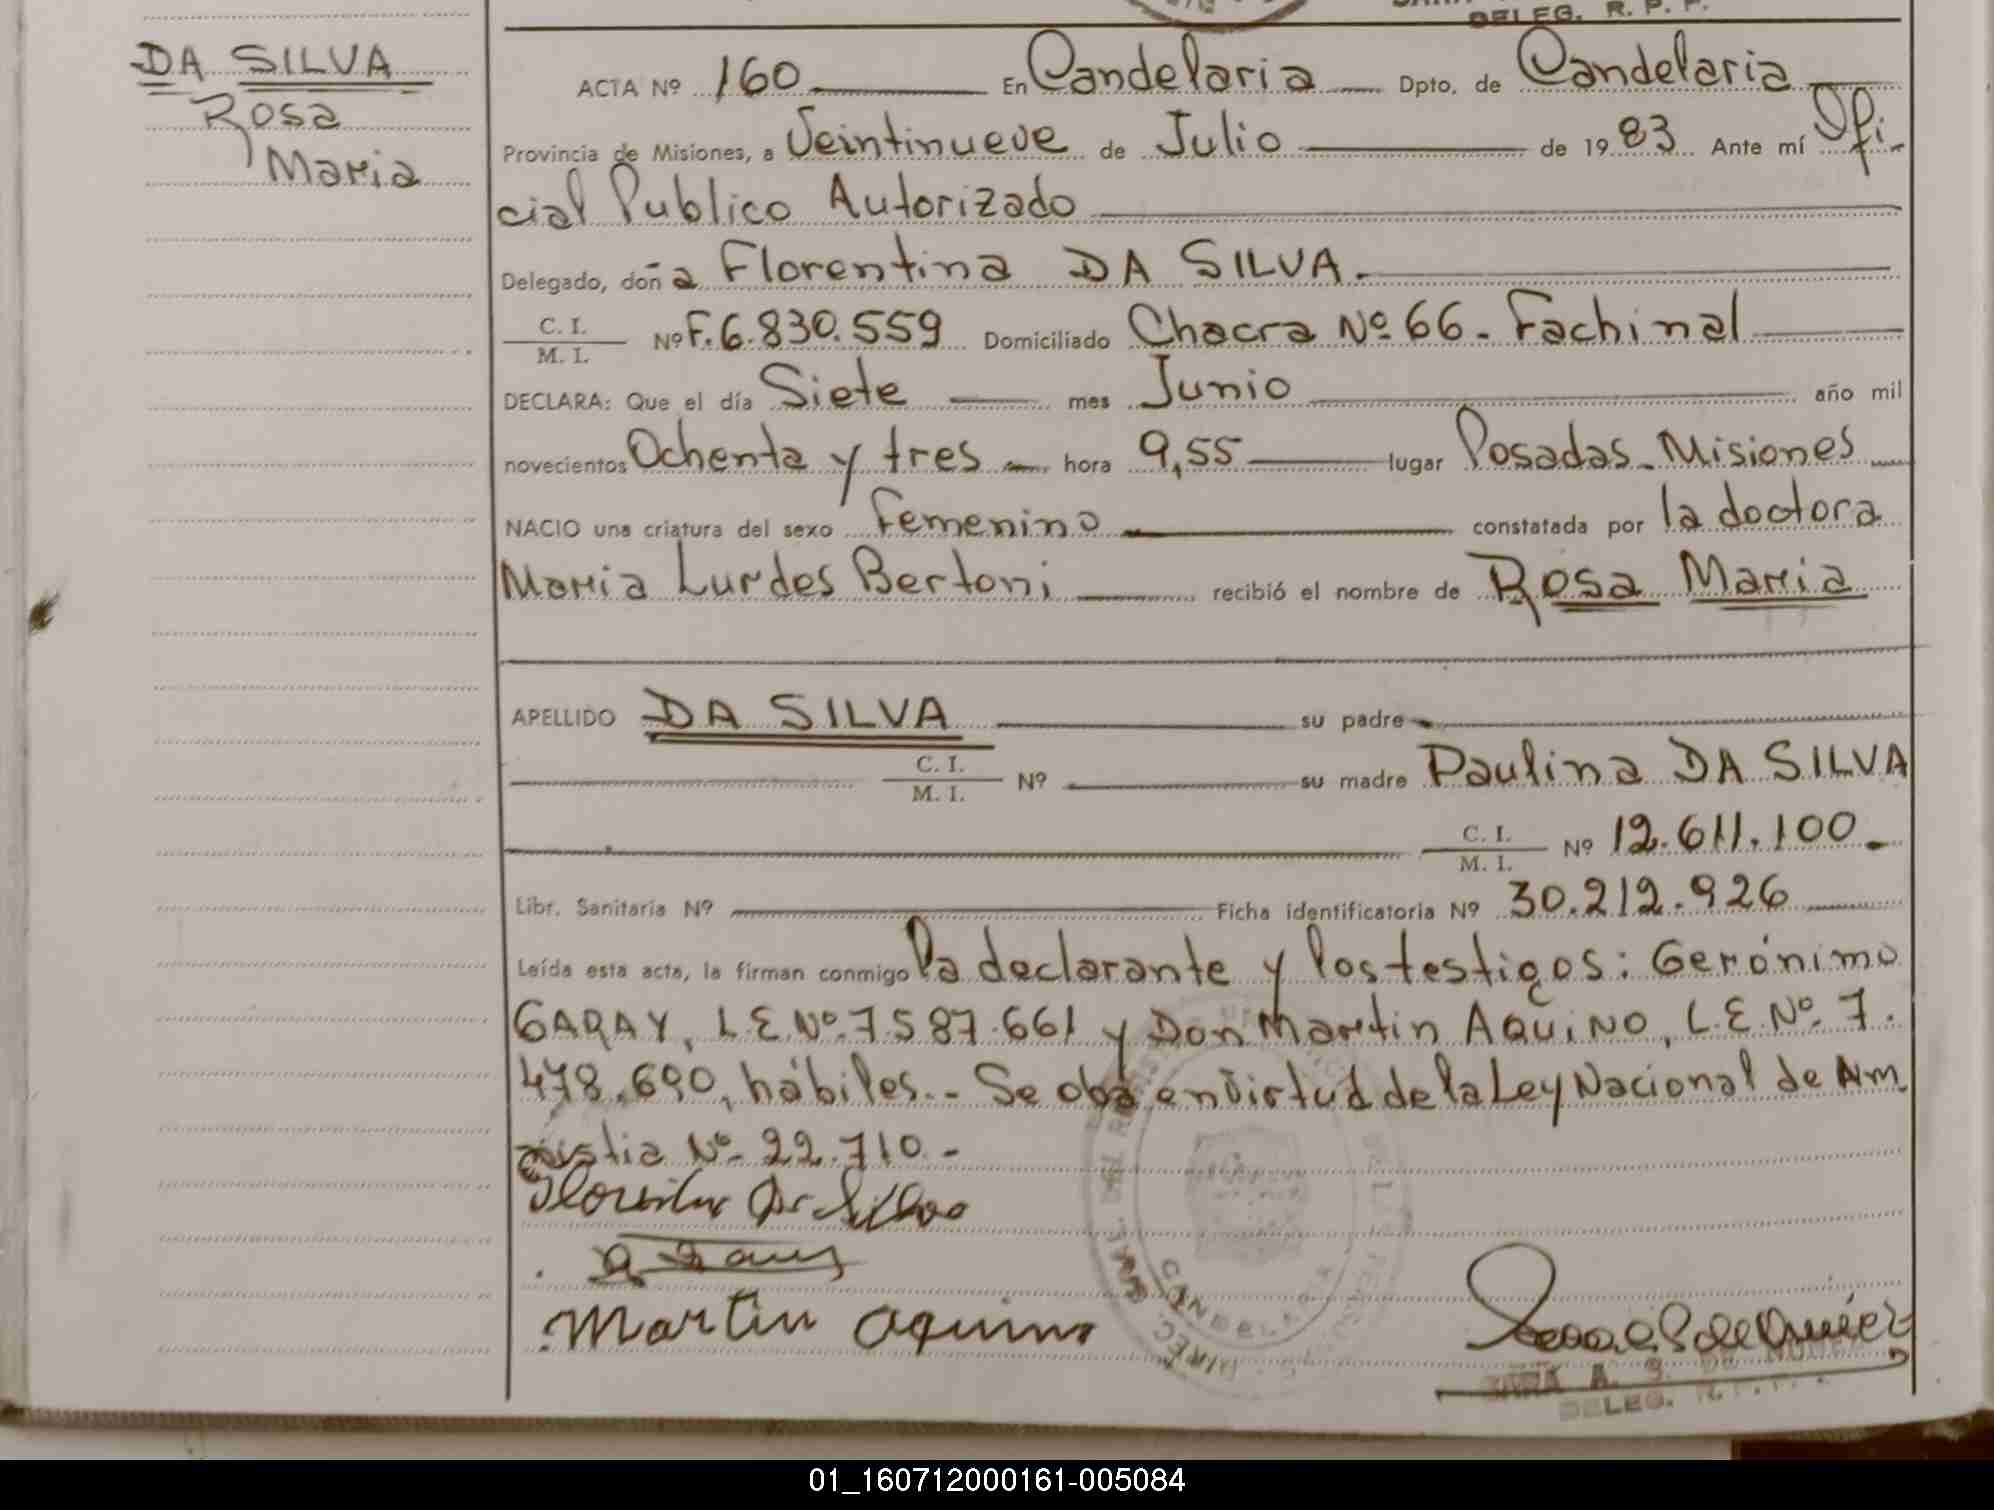 DELEG. R. P. P.
DA SILVA
Rosa
Maria
ACTA Nº 160 En Candelaria Dpto. de Candelaria
Provincia de Misiones, a Veintinueve de Julio de 1983 Ante mí Ofi
cial Publico Autorizado
Delegado, doña Florentina DA SILVA.
C. I.
M. I.
Nº F.6.830.559 Domiciliado Chacra Nº 66 - Fachinal
DECLARA: Que el día Siete mes Junio año mil
novecientos Ochenta y tres hora 9,55 lugar Posadas - Misiones
NACIO una criatura del sexo Femenino constatada por la doctora
Maria Lurdes Bertoni recibió el nombre de Rosa Maria
APELLIDO DA SILVA su padre
C. I.
M. I.
Nº su madre Paulina DA SILVA
C. I.
M. I.
Nº 12.611.100.
Libr. Sanitaria Nº Ficha identificatoria Nº 30.212.926
Leída esta acta, la firman conmigo la declarante y los testigos: Gerónimo
GARAY, L.E.Nº.7587.661 y Don Martin AQUINO, L.E.Nº.7.
478.690, hábiles.- Se obra en Virtud de la Ley Nacional de Am
nistia Nº 22.710.-
Martin Aquino
CANDELARIA
SARA A. S. DE NUÑEZ
DELEG. R. P. P.
01_160712000161-005084